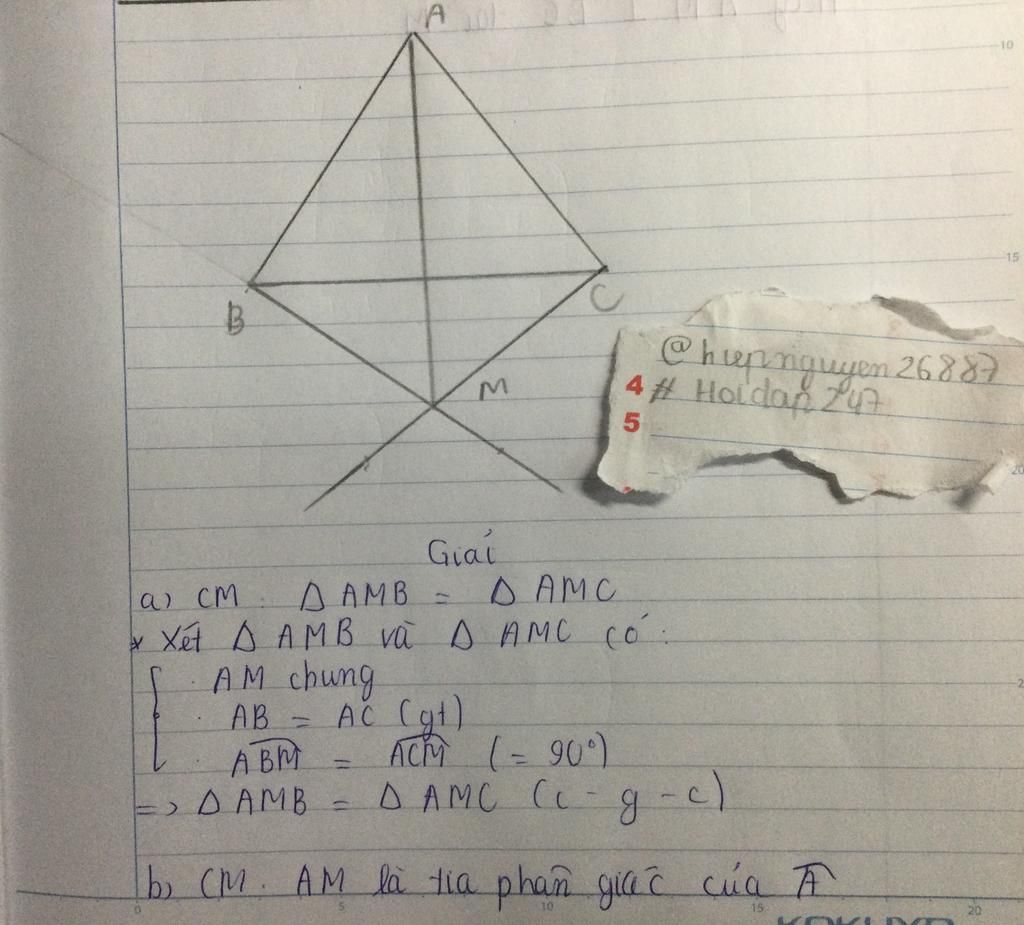 A
B
C
M
@hiepnguyen26887
# Hoidap247
4
5
10
15
20
Giải
a) CM: Δ AMB = Δ AMC
* Xét Δ AMB và Δ AMC có:
AM chung
AB = AC (gt)
ABM = ACM (= 90°)
=> Δ AMB = Δ AMC (c - g - c)
b) CM: AM là tia phân giác của A
0 5 10 15 20
KOKUYO